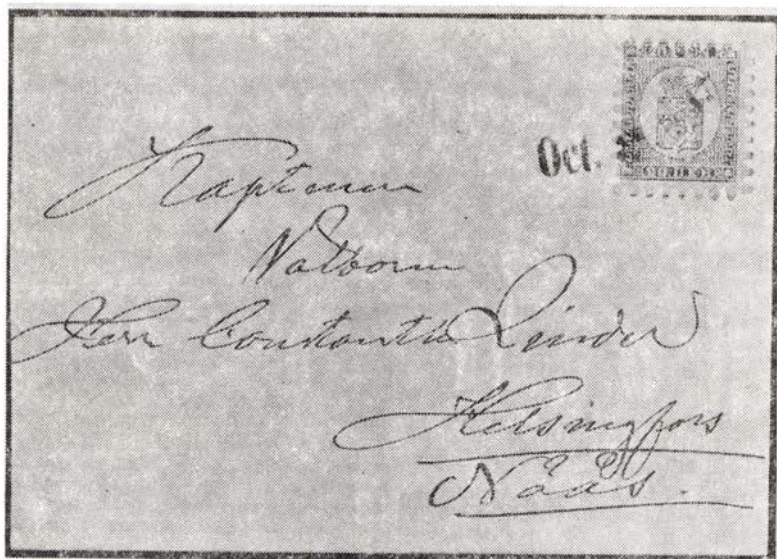 Oct.
Kaptenen
Välborne
Herr Constantin Linder
Helsingfors
Näås.